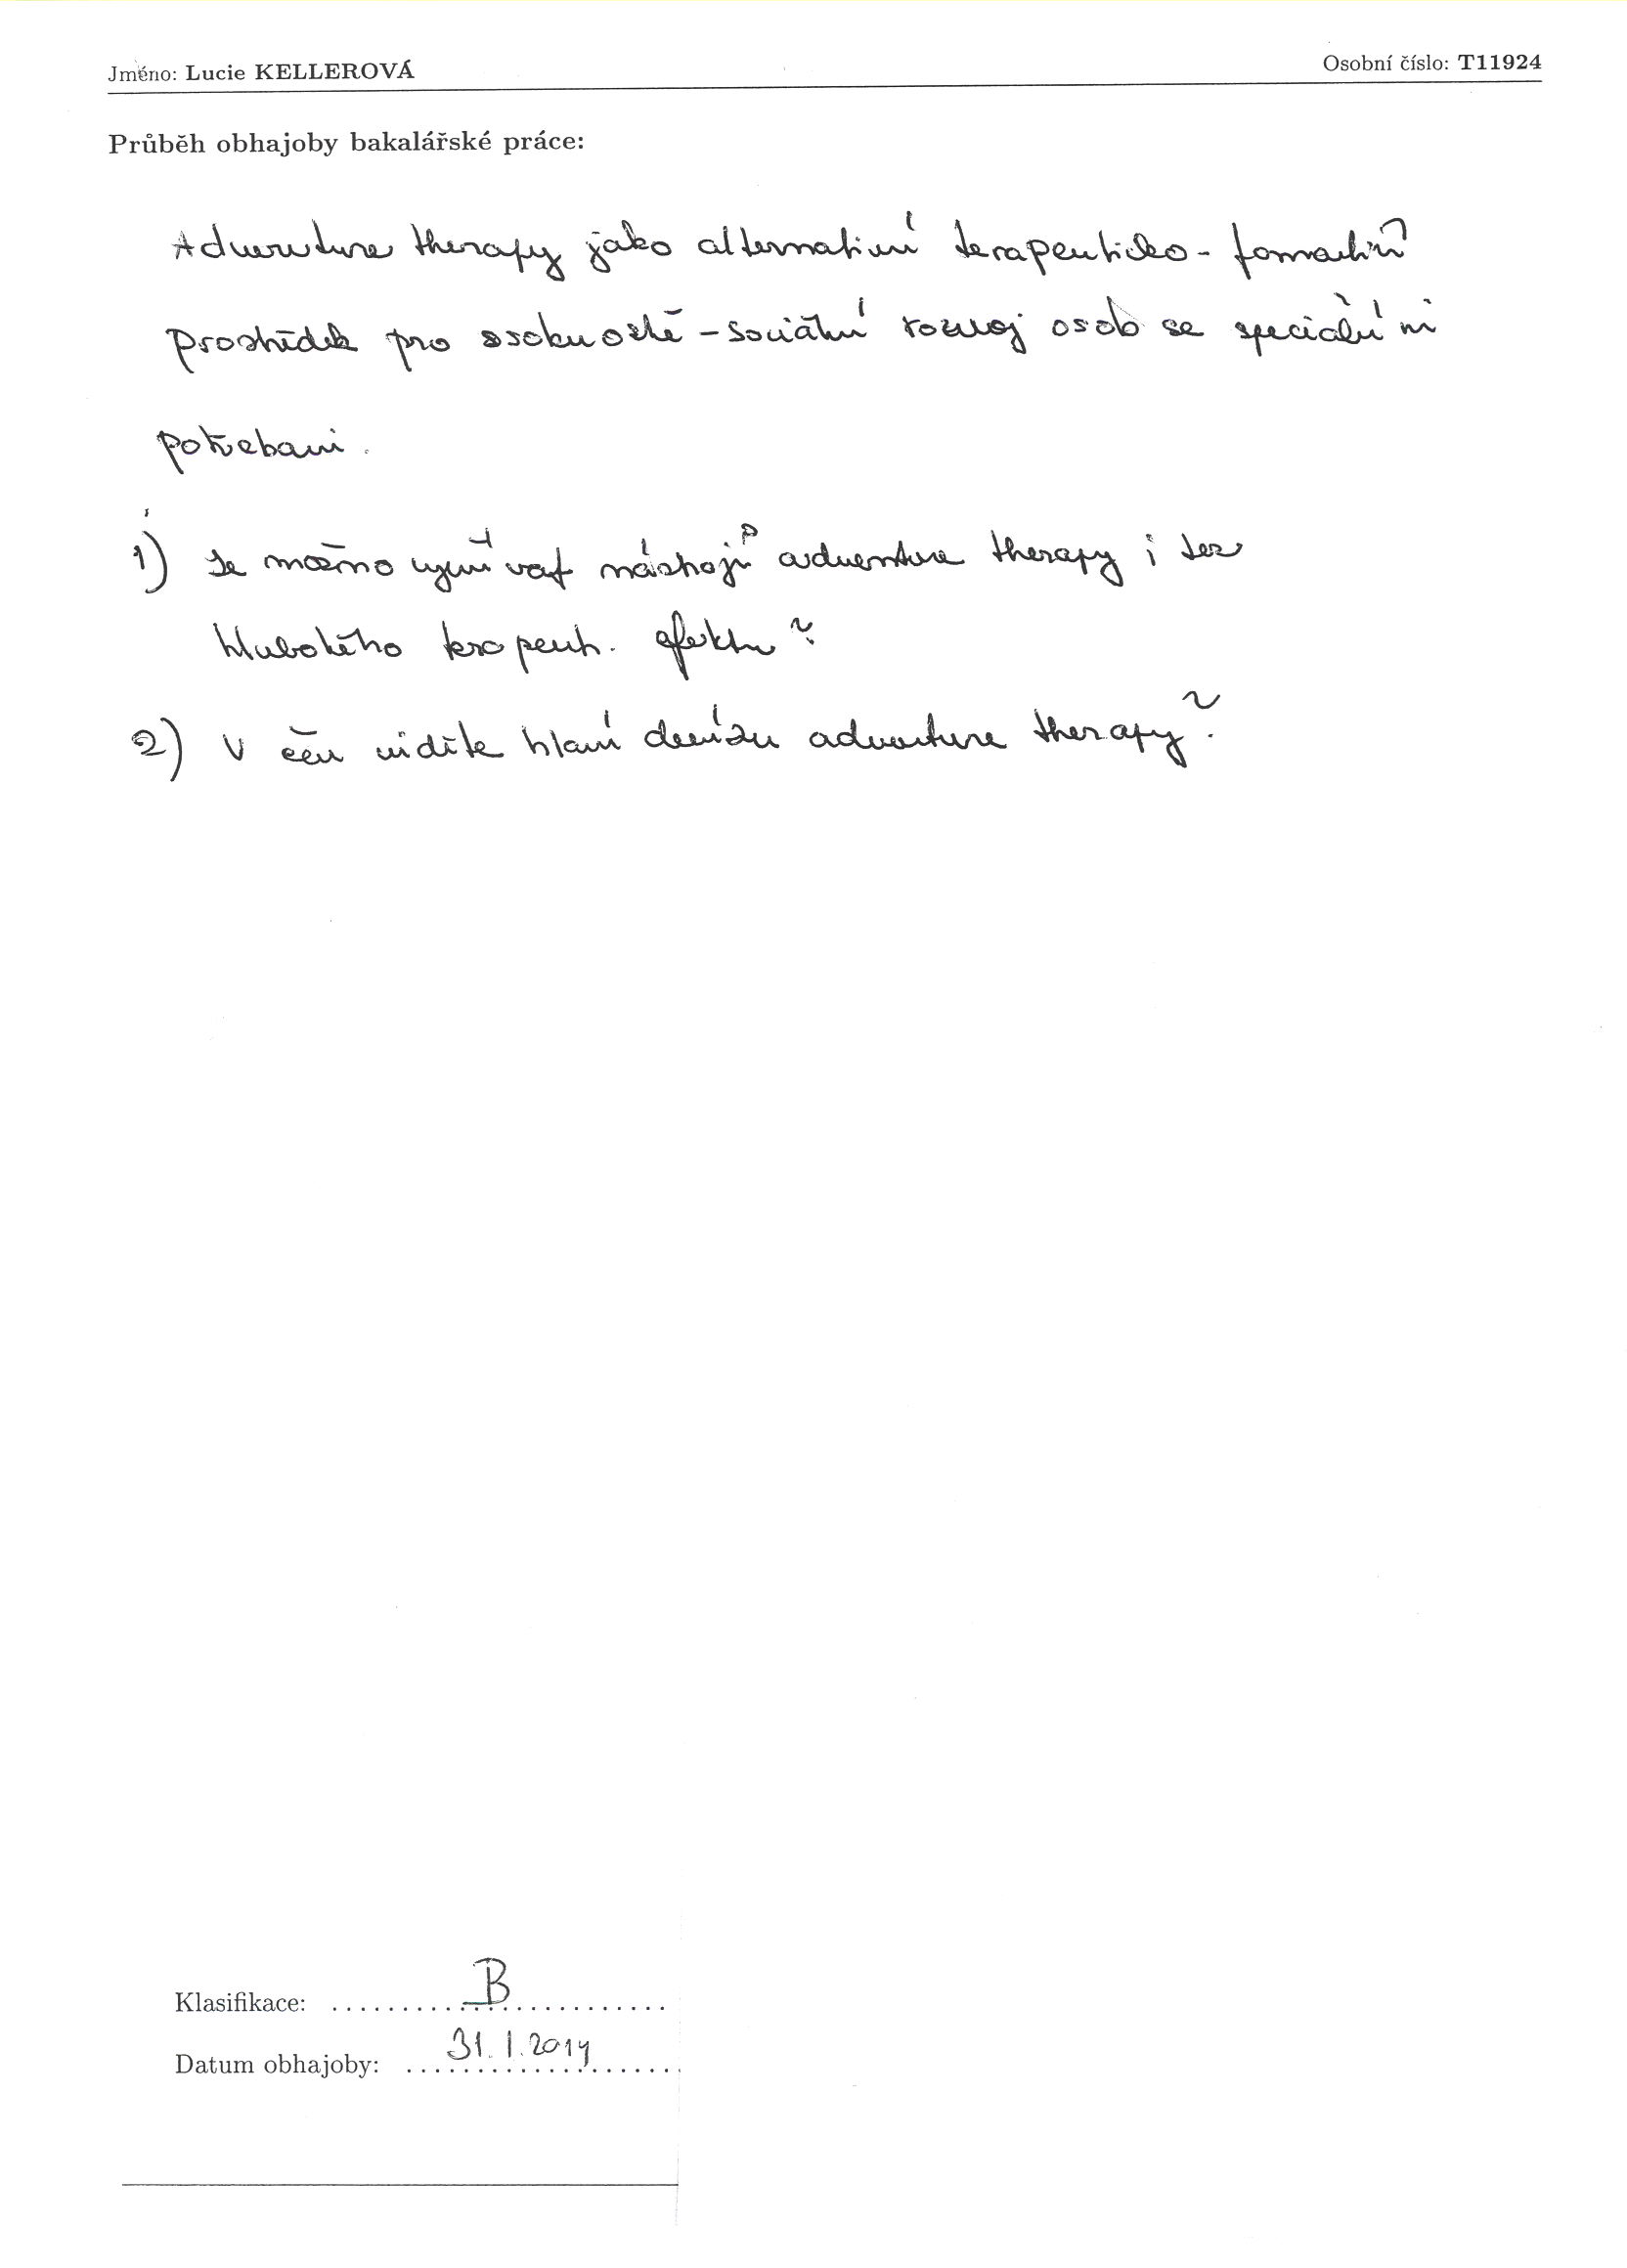 Jméno: Lucie KELLEROVÁ Osobní číslo: T11924
Průběh obhajoby bakalářské práce:
Adventure therapy jako alternativní terapeuticko-formativní
prostředek pro osobnostně-sociální rozvoj osob se speciálními
potřebami.
1) Je možno využívat nástrojů adventure therapy i bez
hlubokého terapeut. efektu?
2) V čem vidíte hlavní devízu adventure therapy?
Klasifikace: B
Datum obhajoby: 31.1.2014